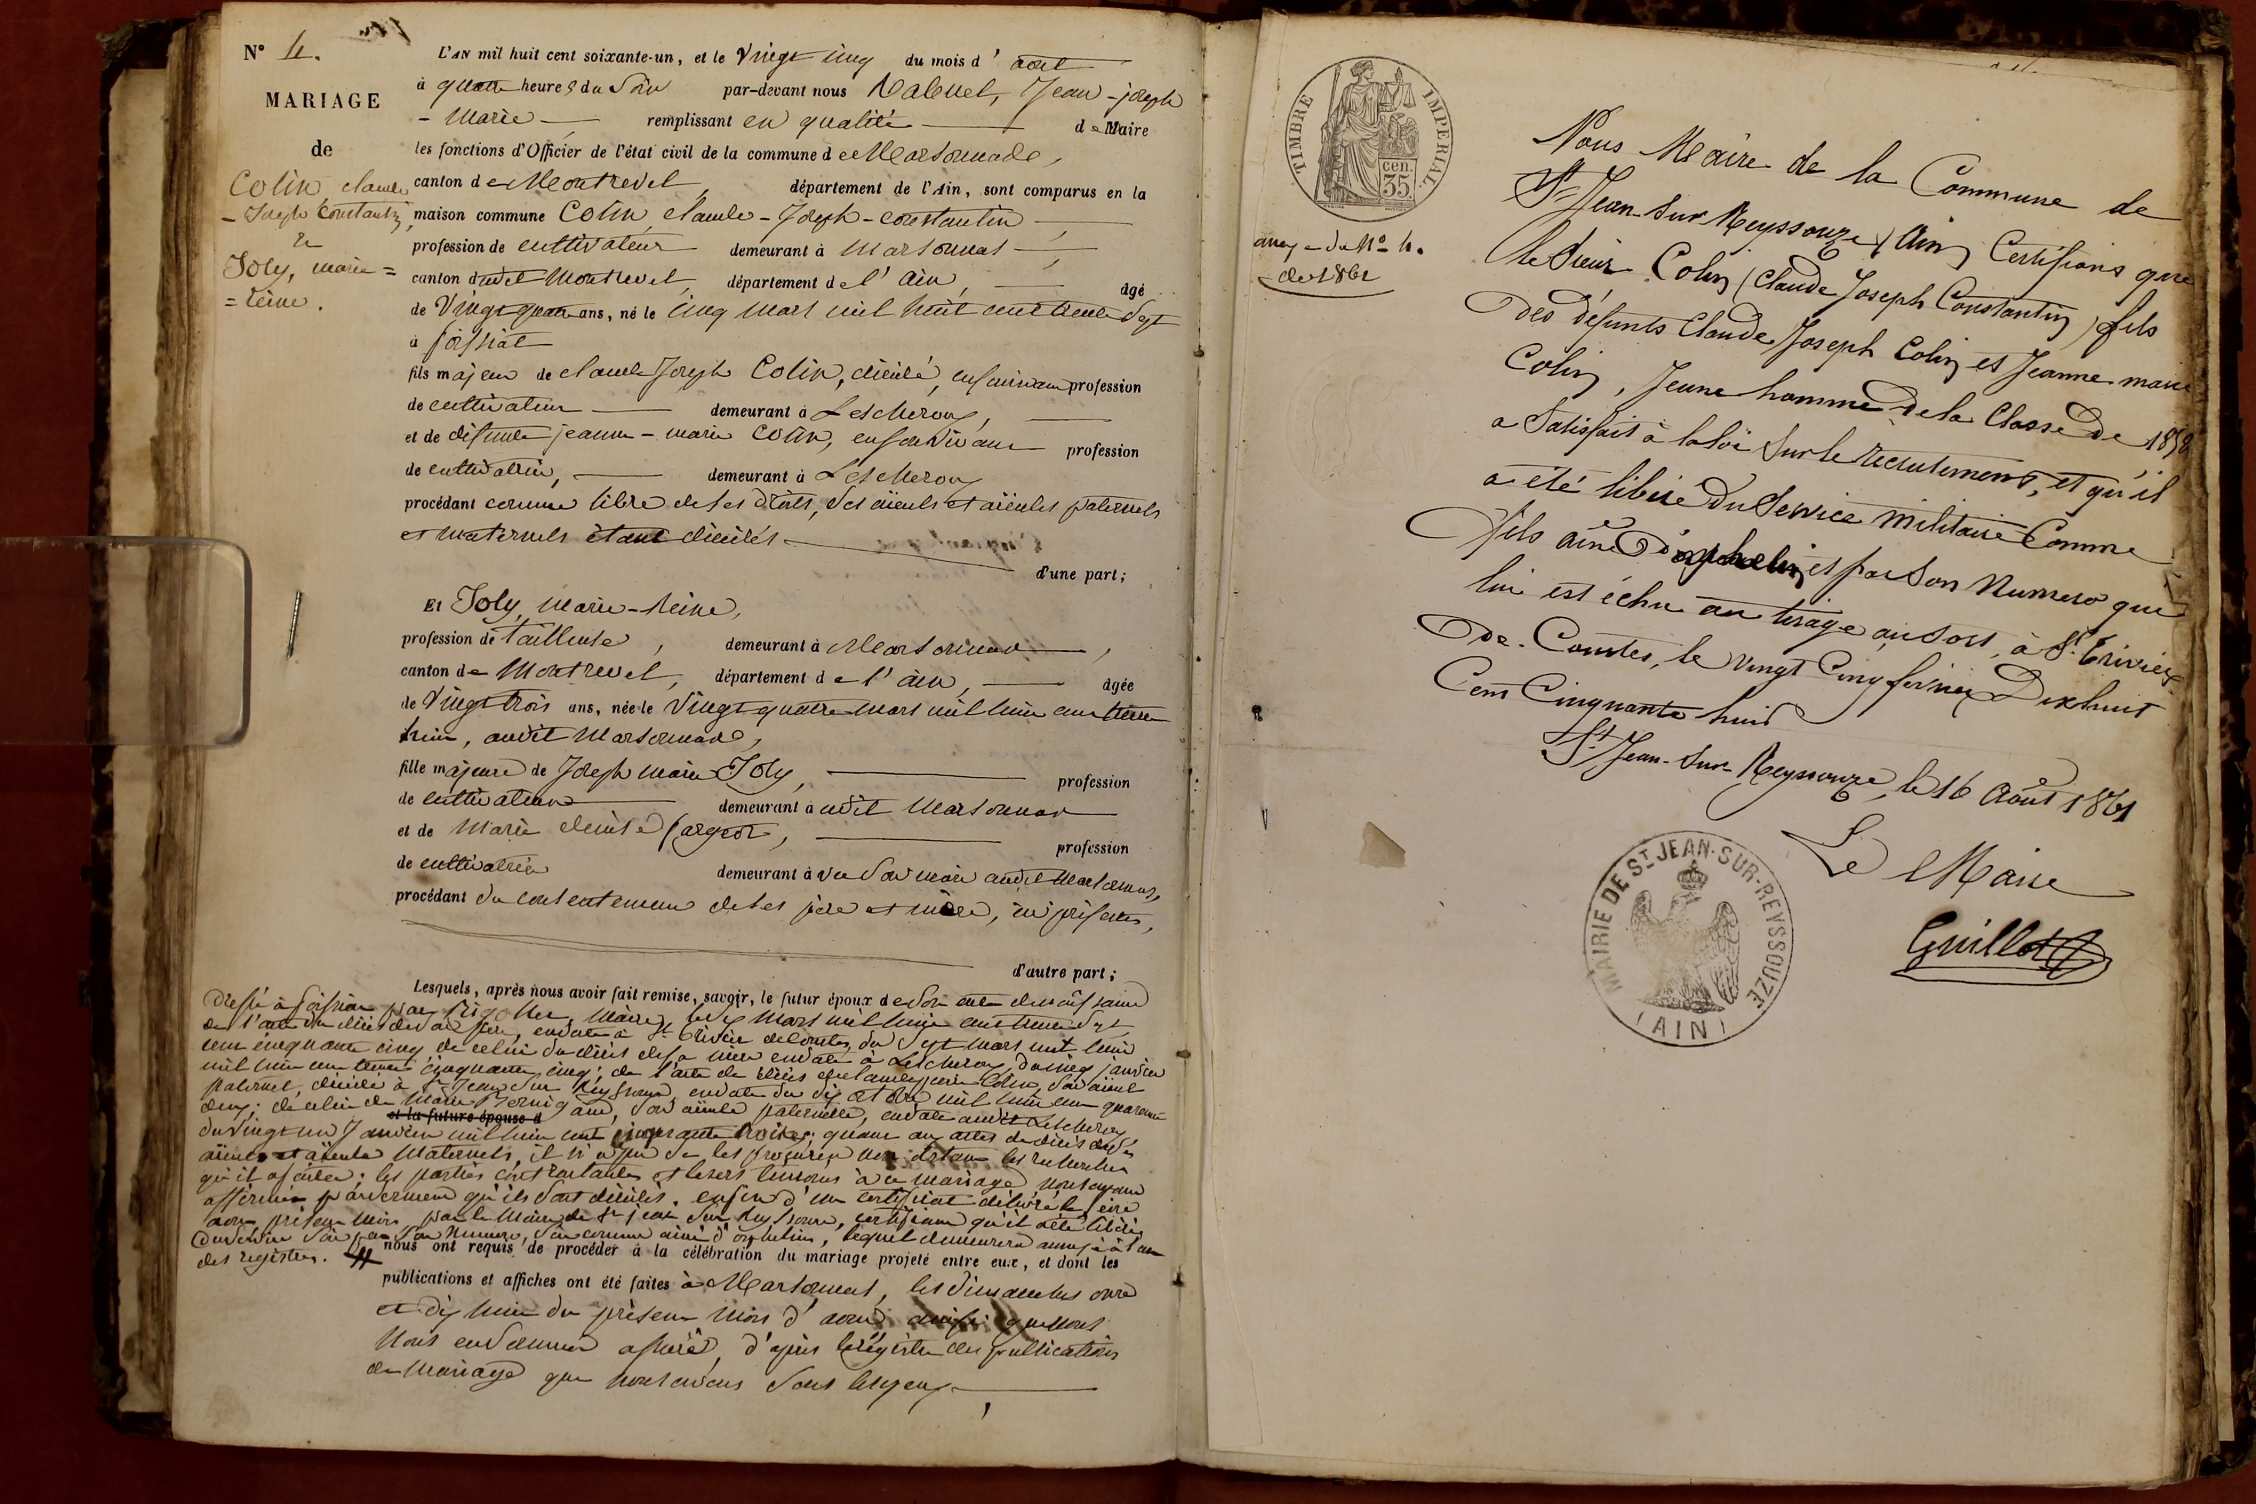 N° 4.
MARIAGE
de
Colin claude
- Joseph Constantin,
&
Joly, marie =
= reine.
L'AN mil huit cent soixante-un, et le Vingt cinq du mois d'août
à quatre heures du Soir par-devant nous Jean-joseph
- Marie remplissant en qualité de Maire
les fonctions d'Officier de l'état civil de la commune de Marsonnas,
canton de Montrevel, département de l'Ain, sont comparus en la
maison commune Colin, claude-Joseph-constantin
profession de cultivateur demeurant à Marsonnas
canton dudit Montrevel, département de l'ain, âgé
de Vingt quatre ans, né le cinq mars mil huit cent trente Sept
à foissiat
fils majeur de claude Joseph Colin, décédé, en son vivant profession
de cultivateur demeurant à Lescheroux,
et de défunte jeanne-marie Colin, en son vivant profession
de cultivatrice, demeurant à Lescheroux
procédant comme libre de ses droits, Ses aïeuls et aïeules paternels
et maternels étant décédés
d'une part;
Et Joly, Marie-Reine,
profession de tailleuse, demeurant à Marsonnas,
canton de Montrevel, département de l'ain, âgée
de Vingt trois ans, née le Vingt quatre mars mil huit cent trente
huit, audit Marsonnas,
fille majeure de Joseph marie Joly, profession
de cultivateur demeurant à audit Marsonnas
et de Marie denise fargeot, profession
de cultivatrice demeurant à avec Son mari audit Marsonnas,
procédant du consentement de ses père et mère, ici présents,
d'autre part;
Lesquels, après nous avoir fait remise, savoir, le futur époux de Son acte de naissance
dressé à foissiat par Maire, le Six Mars mil huit cent trente Sept,
de l'acte de décès de Son père, en date à St Trivier de Courtes du Sept mars mil huit
cent cinquante cinq, de celui du décès de Sa mère en date à Lescheroux, du cinq janvier
mil huit cent cinquante cinq; de l'acte de décès de Colin, Son aïeul
paternel, décédé à St Jean Sur Reyssouze, en date du dix octobre mil huit cent quarante
deux; de celui de Marie, Son aïeule paternelle, en date audit Lescheroux
et la future épouse d
du vingt un Janvier mil huit cent cinquante trois; quant aux actes de décès de Ses
aïeuls et aïeules Maternels, il n'a pu se les procurer les recherches
qu'il a faites; les parties contractantes et leurs témoins à ce mariage nous ayant
affirmé par Serment qu'ils Sont décédés. enfin d'un certificat délivré le Seize
août présent mois, par le Maire de St jean Sur Reyssouze, certifiant qu'il a été libéré
du Service Soit par Son Numéro, Soit comme aîné d'orphelins, lequel demeurera annexé à l'un
des registres.
nous ont requis de procéder à la célébration du mariage projeté entre eux, et dont les
publications et affiches ont été faites à Marsonnas, les dimanches onze
et dix huit du présent mois d'août ainsi que nous
Nous en Sommes assuré, d'après le registre des publications
de Mariage que nous avons Sous les yeux
TIMBRE IMPERIAL
35 cen.
annexe du N° 4.
de 1861
Nous Maire de la Commune de
St Jean-Sur Reyssouze (Ain) Certifions que
le Sieur Colin (Claude Joseph Constantin) fils
des défunts Claude Joseph Colin et Jeanne marie
Colin, Jeune homme de la Classe de 1858
a Satisfait à la loi Sur le recrutement, et qu'il
a été libéré du Service militaire Comme
fils aîné d'orphelin et par Son Numero qui
lui est échu au tirage au sort, à St Trivier
de Courtes, le vingt Cinq fevrier Dix huit
Cent Cinquante huit
St Jean-Sur-Reyssouze, le 16 Août 1861
Le Maire
Guillot
MAIRIE DE ST JEAN-SUR-REYSSOUZE
(AIN)